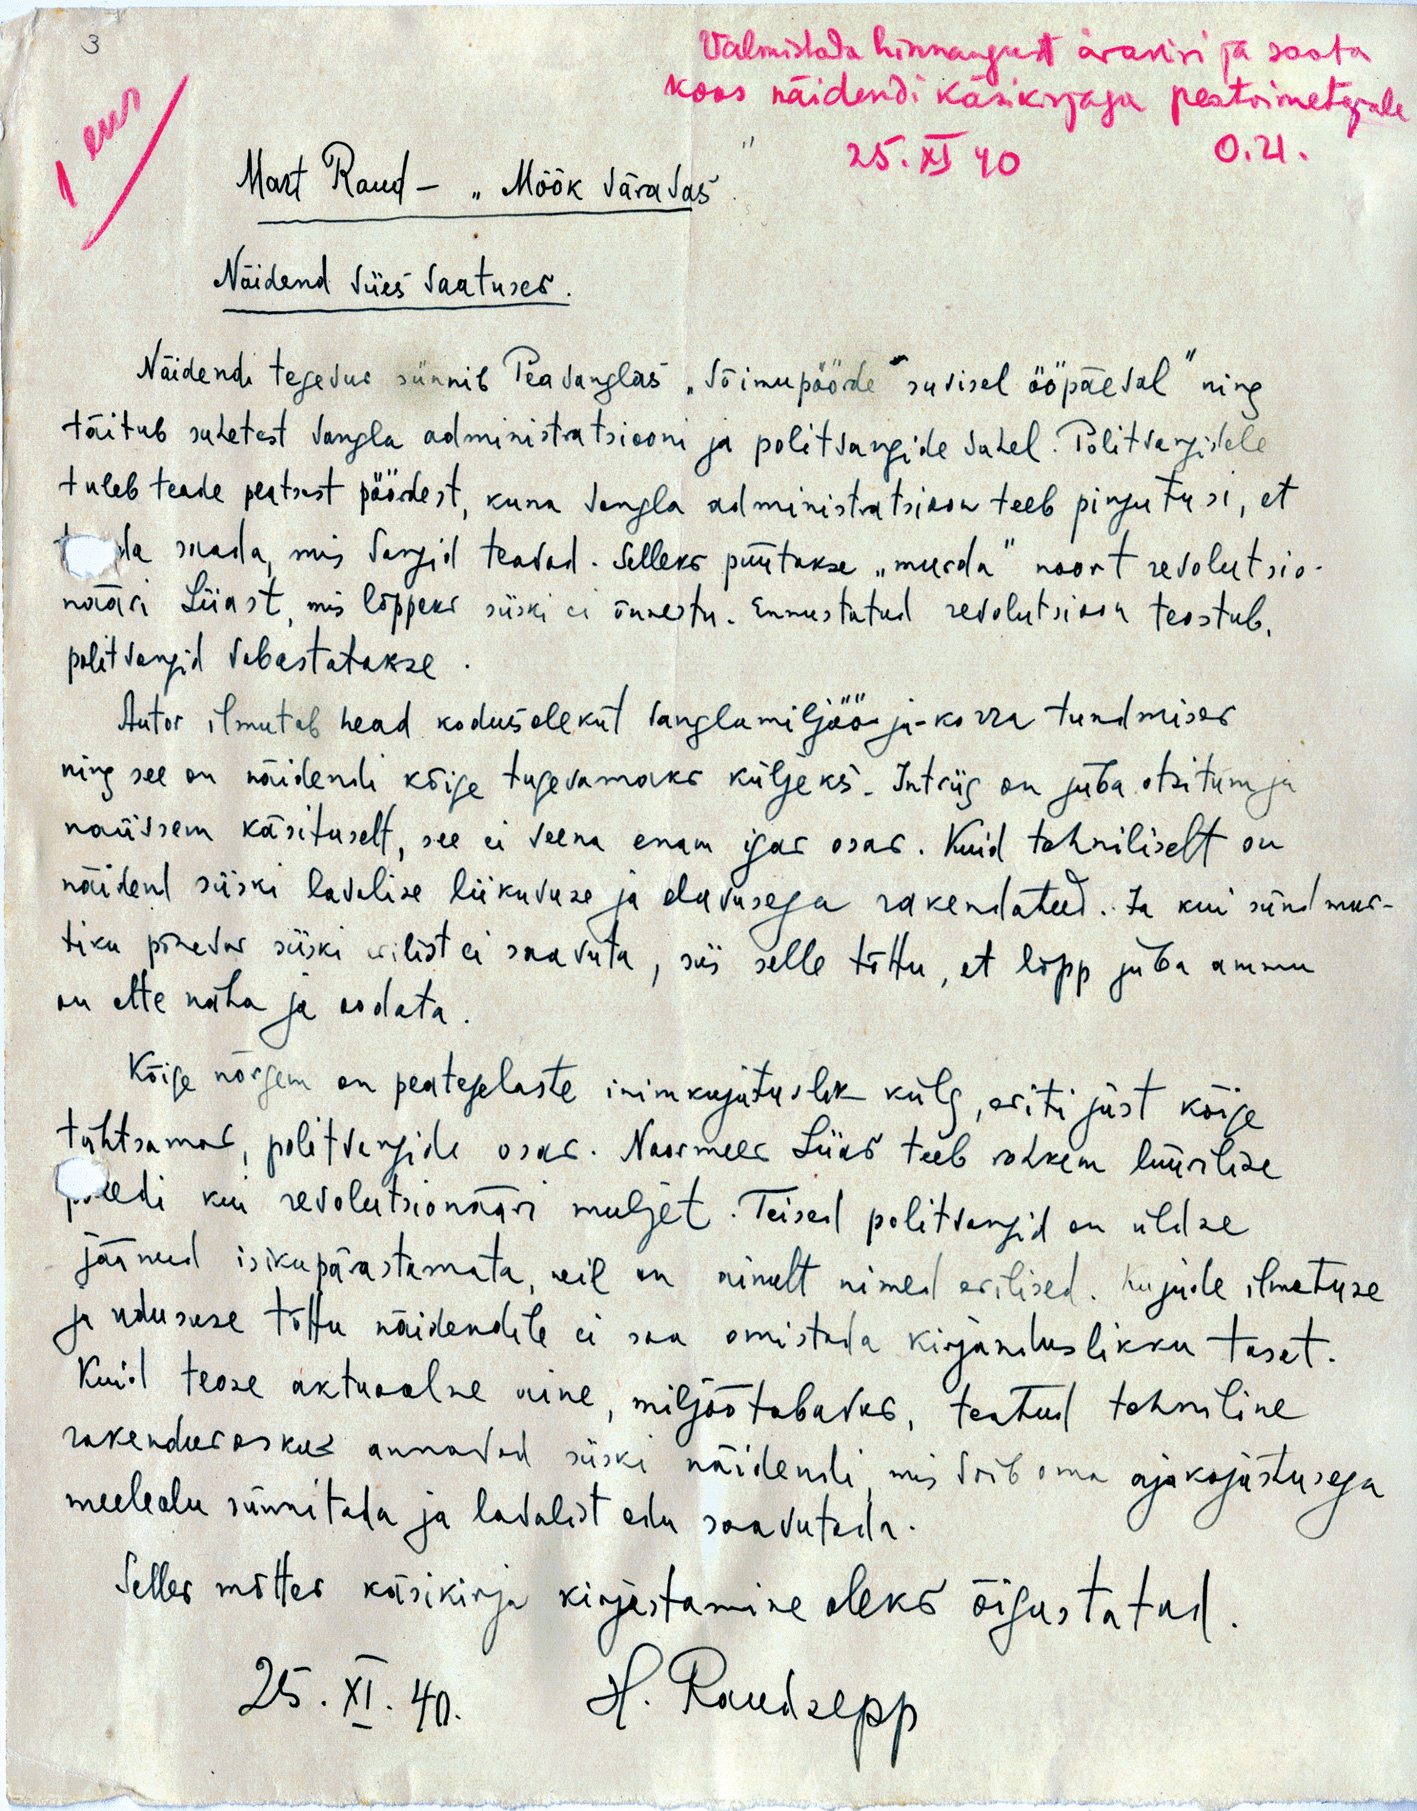 3
Valmistada hinnangust ärakiri ja saata
koos näidendi käsikirjaga peatoimetajale
25. XI 40 O.U.
1 eks
Mart Raud – „Mõõk väravas"
Näidend viies vaatuses.
Näidendi tegevus sünnib Peavanglas „võimupöörde suvisel ööpäeval" ning
täitub suhetest vangla administratsiooni ja politvangide vahel. Politvangidele
tuleb teade peatsest pöördest, kuna vangla administratsioon teeb pingutusi, et
da saada, mis vangid teavad. Selleks püütakse „murda" noort revolutsio-
nääri Liiast, mis lõppeks siiski ei õnnestu. Ennustatud revolutsioon teostub,
politvangid vabastatakse.
Autor ilmutab head kodusolekut vanglamiljöö ja -korra tundmises
ning see on näidendi kõige tugevamaks küljeks. Intriig on juba otsitum ja
naiivsem käsituselt, see ei veena enam igas osas. Kuid tehniliselt on
näidend siiski lavalise liikuvuse ja elavusega rakendatud. Ja kui sündmus-
tiku põnevus siiski erilist ei saavuta, siis selle tõttu, et lõpp juba ammu
on ette näha ja oodata.
Kõige nõrgem on peategelaste inimkujutuslik külg, eriti just kõige
tähtsamas, politvangide osas. Noormees Liias teeb rohkem lüürilise
poeedi kui revolutsionääri muljet. Teised politvangid on üldse
jäänud isikupärastamata, neil on ainult nimed erilised. Kujude ilmetuse
ja udususe tõttu näidendile ei saa omistada kirjanduslikku taset.
Kuid teose aktuaalne aine, miljöötabavus, teatud tehniline
rakendusoskus annavad siiski näidendi, mis võib oma ajakajastusega
meeleolu sünnitada ja lavalist edu saavutada.
Selles mõttes käsikirja kirjastamine oleks õigustatud.
25. XI. 40. H. Raudsepp